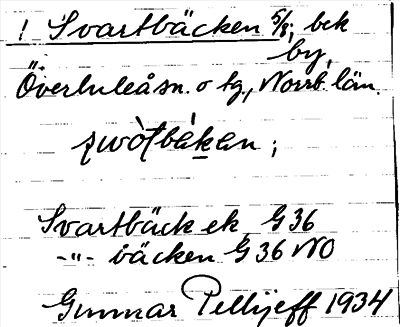 1 Svartbäcken 5/8, bek
by,
Överluleå sn. o tg, Norrb. län.
Svartbäck ek. G 36
-"- bäcken G 36 NO
Gunnar Pellijeff 1934